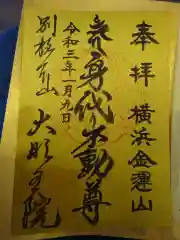 奉拝 横浜金運山
身代り不動尊
令和三年一月九日
別格本山
大明王院